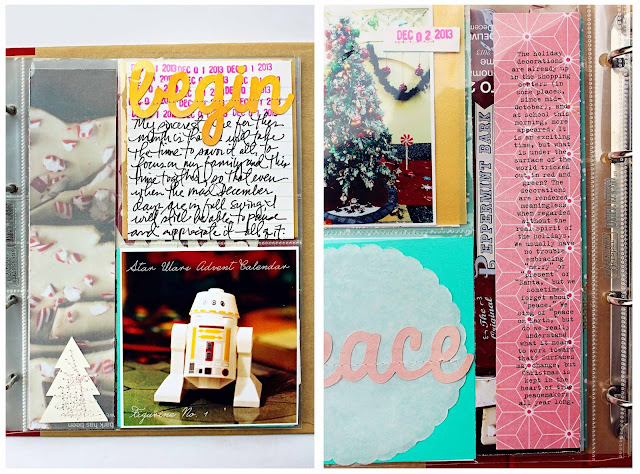 DEC 01 2013 DEC 01 2013 DEC 01 2013
begin
My sincerest for this
month is that I will take
the time to savor it all, to
focus on my family and this
time together so that even
when the mad December
days are in full swing I
will still be able to pause
and appreciate it all.
Star Wars Advent Calendar
Figurine No. 1
DEC 02 2013
peace
PEPPERMINT BARK
The
Original
The holiday
decorations
are already up
in the shopping
centers (in
some places,
since mid-
October), and
at school this
morning, more
appeared. It
is an exciting
time, but what
is under the
surface of the
world tricked
out in red and
green? The
decorations
are rendered
meaningless
when regarded
without the
real spirit of
the holidays.
We usually have
no trouble
embracing
"merry" or
"present" or
"Santa," but we
sometimes
forget about
"peace." We
sing of "peace
on earth," but
do we really
understand
what it means
to work toward
that? Surfaces
may change, but
Christmas is
kept in the
heart of true
peacemakers
all year long.